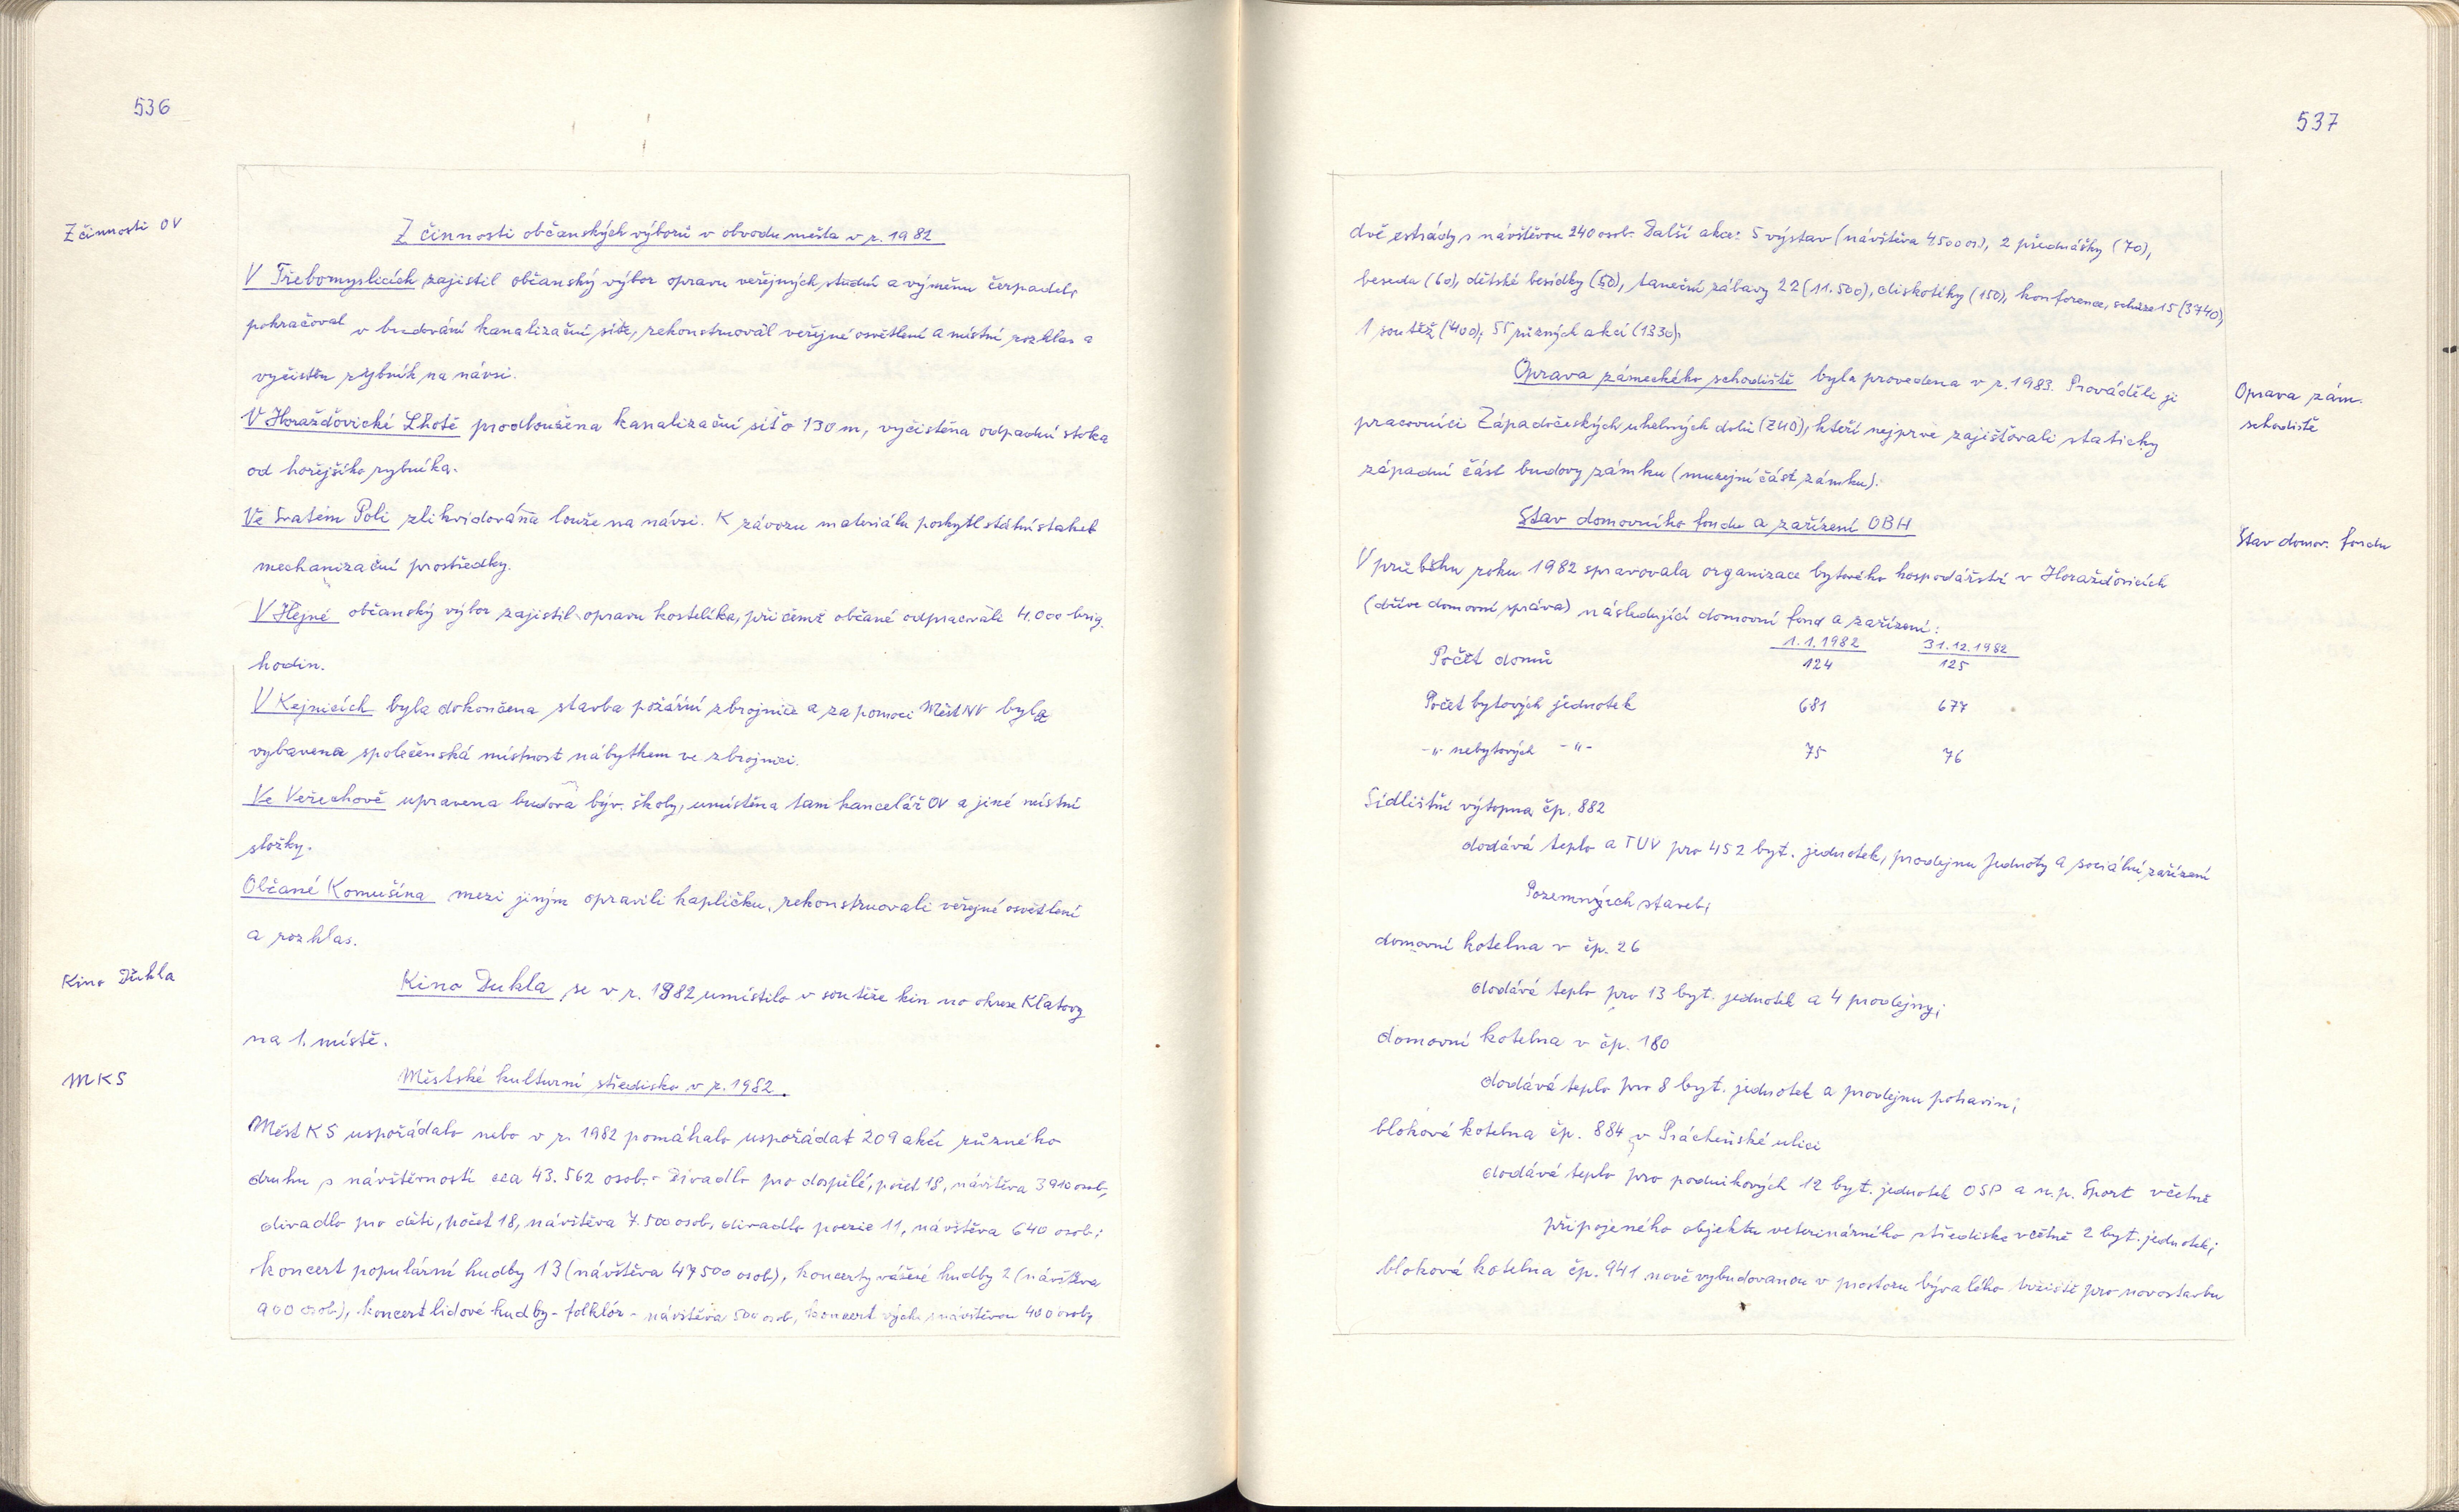 536
Z činnosti OV
Z činnosti občanských výborů v obvodu města v r. 1982
V Třebomyslicích zajistil občanský výbor opravu veřejných studní a výměnu čerpadel,
pokračoval v budování kanalizační sítě, rekonstruoval veřejné osvětlení a místní rozhlas a
vyčištěn rybník na návsi.
V Horažďovické Lhotě prodloužena kanalizační síť o 130 m, vyčistěna odpadní stoka
od hořejšího rybníka.
Ve Svatém Poli zlikvidována louže na návsi. K závozu materiálu poskytl státní statek
mechanizační prostředky.
V Hejné občanský výbor zajistil opravu kostelíka, při čemž občané odpracovali 4.000 brig.
hodin.
V Kejnicích byla dokončena stavba požární zbrojnice a za pomoci MěstNV byla
vybavena společenská místnost nábytkem ve zbrojnici.
Ve Veřechově upravena budova býv. školy, umístěna tam kancelář OV a jiné místní
složky.
Občané Komušína mezi jiným opravili kapličku, rekonstruovali veřejné osvětlení
a rozhlas.
Kino Dukla
Kino Dukla se v r. 1982 umístilo v soutěže kin na okrese Klatovy
na 1. místě.
MKS
Městské kulturní středisko v r. 1982.
Měst KS uspořádalo nebo v r. 1982 pomáhalo uspořádat 209 akcí různého
druhu s návštěvností cca 43.562 osob. - Divadlo pro dospělé, počet 18, návštěva 3910 osob,
divadlo pro děti, počet 18, návštěva 7.500 osob, divadlo poezie 11, návštěva 640 osob;
koncert populární hudby 13 (návštěva 47500 osob), koncerty vážné hudby 2 (návštěva
900 osob), koncert lidové hudby - folklór - návštěva 500 osob, koncert vých. s návštěvou 400 osob,
537
dvě estrády s návštěvou 240 osob. Další akce: 5 výstav (návštěva 4500 os.), 2 přednášky (70),
beseda (60), dětské besídky (50), taneční zábavy 22 (11.500), diskotéky (150), konference, schůze 15 (3740),
1 soutěž (400); 55 různých akcí (1330).
Oprava zám.
schodiště
Oprava zámeckého schodiště byla provedena v r. 1983. Prováděli ji
pracovníci Západočeských uhelných dolů (ZUD), kteří nejprve zajišťovali staticky
západní část budovy zámku (muzejní část zámku).
Stav domov. fondu
Stav domovního fondu a zařízení OBH
V průběhu roku 1982 spravovala organizace bytového hospodářství v Horažďovicích
(dříve domovní správa) následující domovní fond a zařízení:
1.1.1982 31.12.1982
Počet domů 124 125
Počet bytových jednotek 681 677
-"- nebytových -"- 75 76
Sídlištní výtopna čp. 882
dodává teplo a TUV pro 452 byt. jednotek, prodejnu Jednoty a sociální zařízení
Pozemních staveb;
domovní kotelna v čp. 26
dodává teplo pro 13 byt. jednotek a 4 prodejny;
domovní kotelna v čp. 180
dodává teplo pro 8 byt. jednotek a prodejnu potravin;
bloková kotelna čp. 884 v Prácheňské ulici
dodává teplo pro podnikových 12 byt. jednotek OSP a n.p. Sport včetně
připojeného objektu veterinárního střediska včetně 2 byt. jednotek;
bloková kotelna čp. 941 nově vybudovanou v prostoru bývalého tržiště pro novostavbu